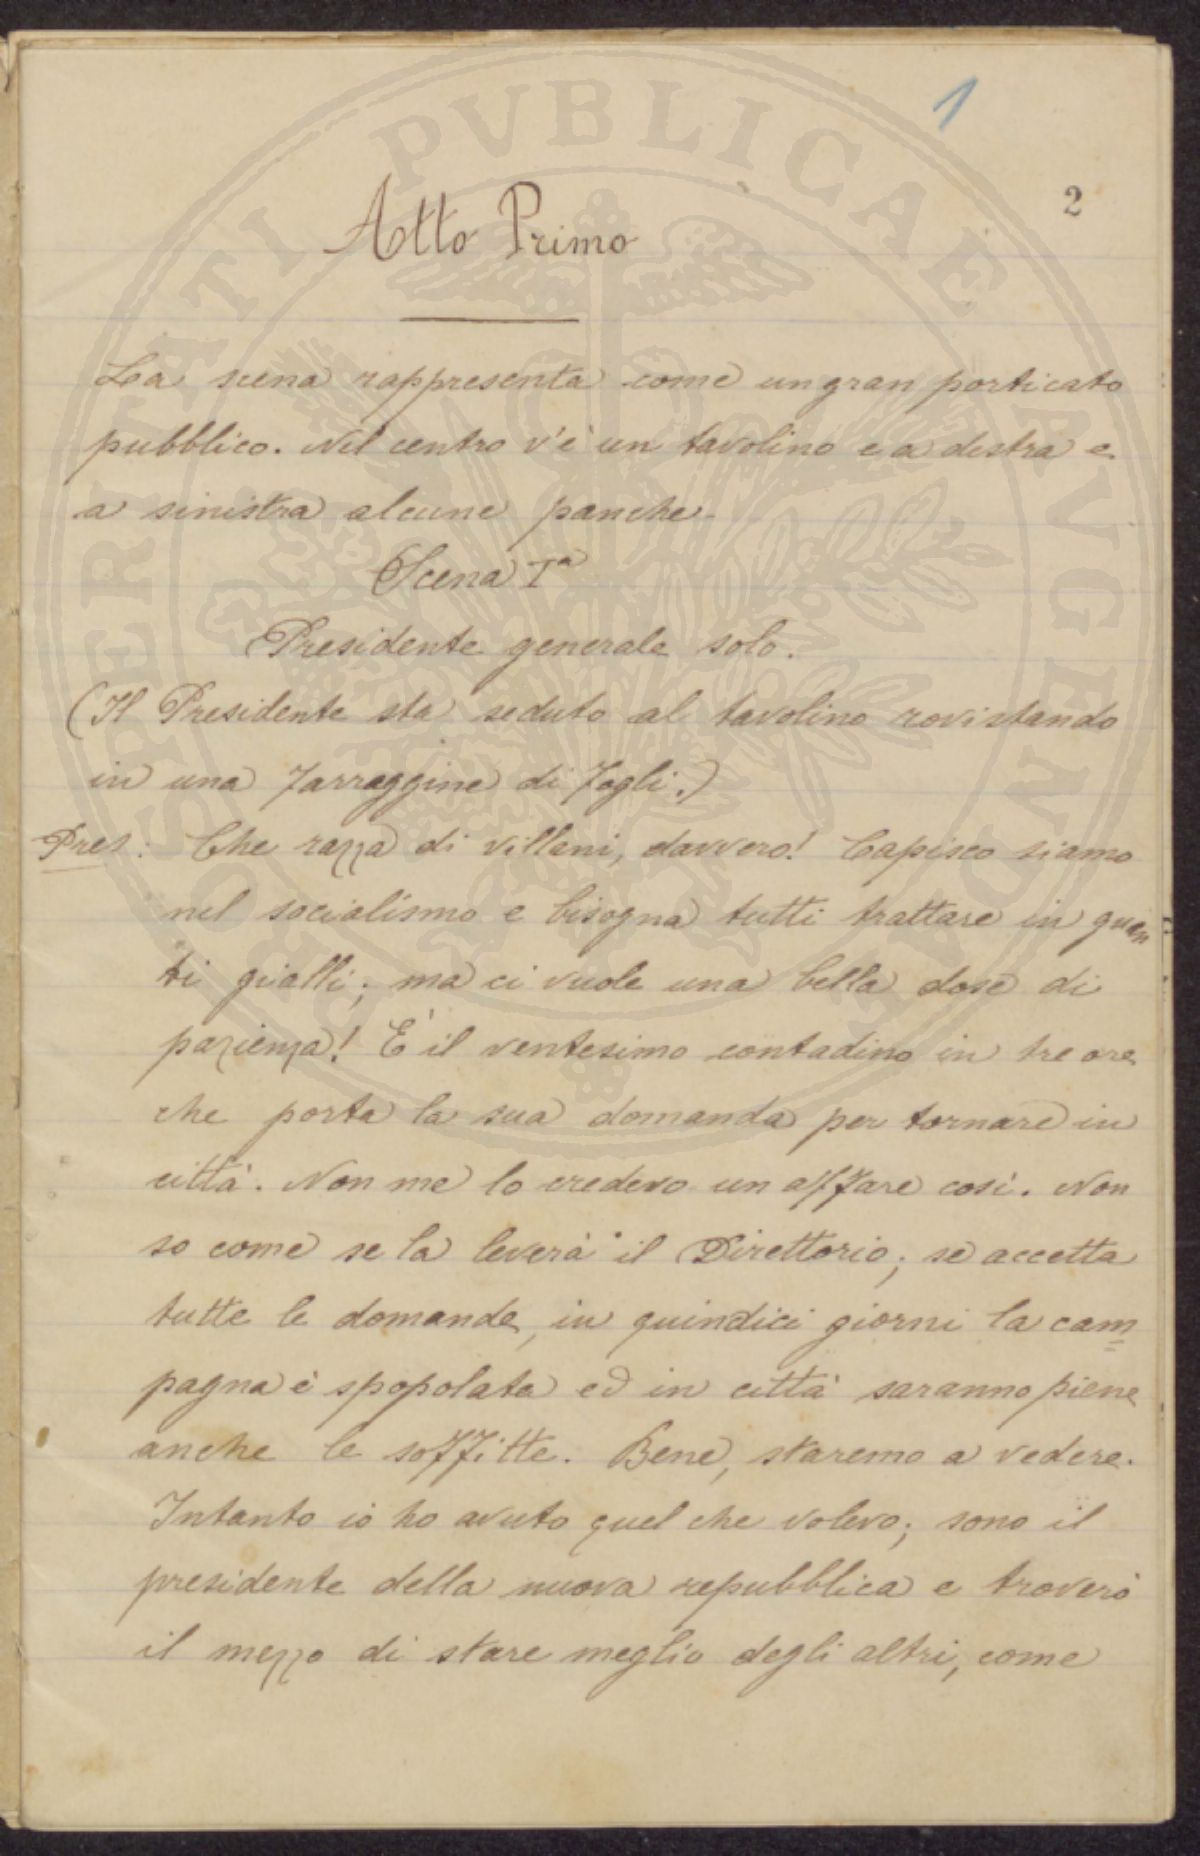 1
2
Atto Primo
La scena rappresenta come un gran porticato
pubblico. Nel centro v'è un tavolino e a destra e
a sinistra alcune panche.
Scena Iª
Presidente generale solo.
(Il Presidente sta seduto al tavolino rovistando
in una farraggine di fogli.)
Pres: Che razza di villani, davvero! Capisco siamo
nel socialismo e bisogna tutti trattare in guan
ti gialli; ma ci vuole una bella dose di
pazienza! E' il ventesimo contadino in tre ore
che porta la sua domanda per tornare in
città. Non me lo credevo un affare così. Non
so come se la leverà il Direttorio; se accetta
tutte le domande, in quindici giorni la cam=
pagna è spopolata ed in città saranno piene
anche le soffitte. Bene, staremo a vedere.
Intanto io ho avuto quel che volevo; sono il
presidente della nuova repubblica e troverò
il mezzo di stare meglio degli altri, come
PROSPERITATI PVBLICAE AVGENDAE